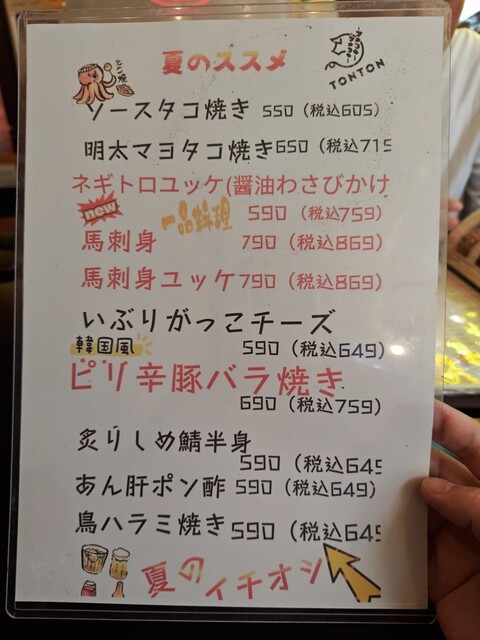 夏のススメ
TONTON
ソースタコ焼き 550 (税込605)
明太マヨタコ焼き650 (税込715
ネギトロユッケ(醤油わさびかけ
new
一品料理
590 (税込759)
馬刺身 790 (税込869)
馬刺身ユッケ790 (税込869)
いぶりがっこチーズ
590 (税込649)
韓国風
ピリ辛豚バラ焼き
690 (税込759)
炙りしめ鯖半身
590 (税込649
あん肝ポン酢 590 (税込649)
鳥ハラミ焼き590 (税込649
夏のイチオシ